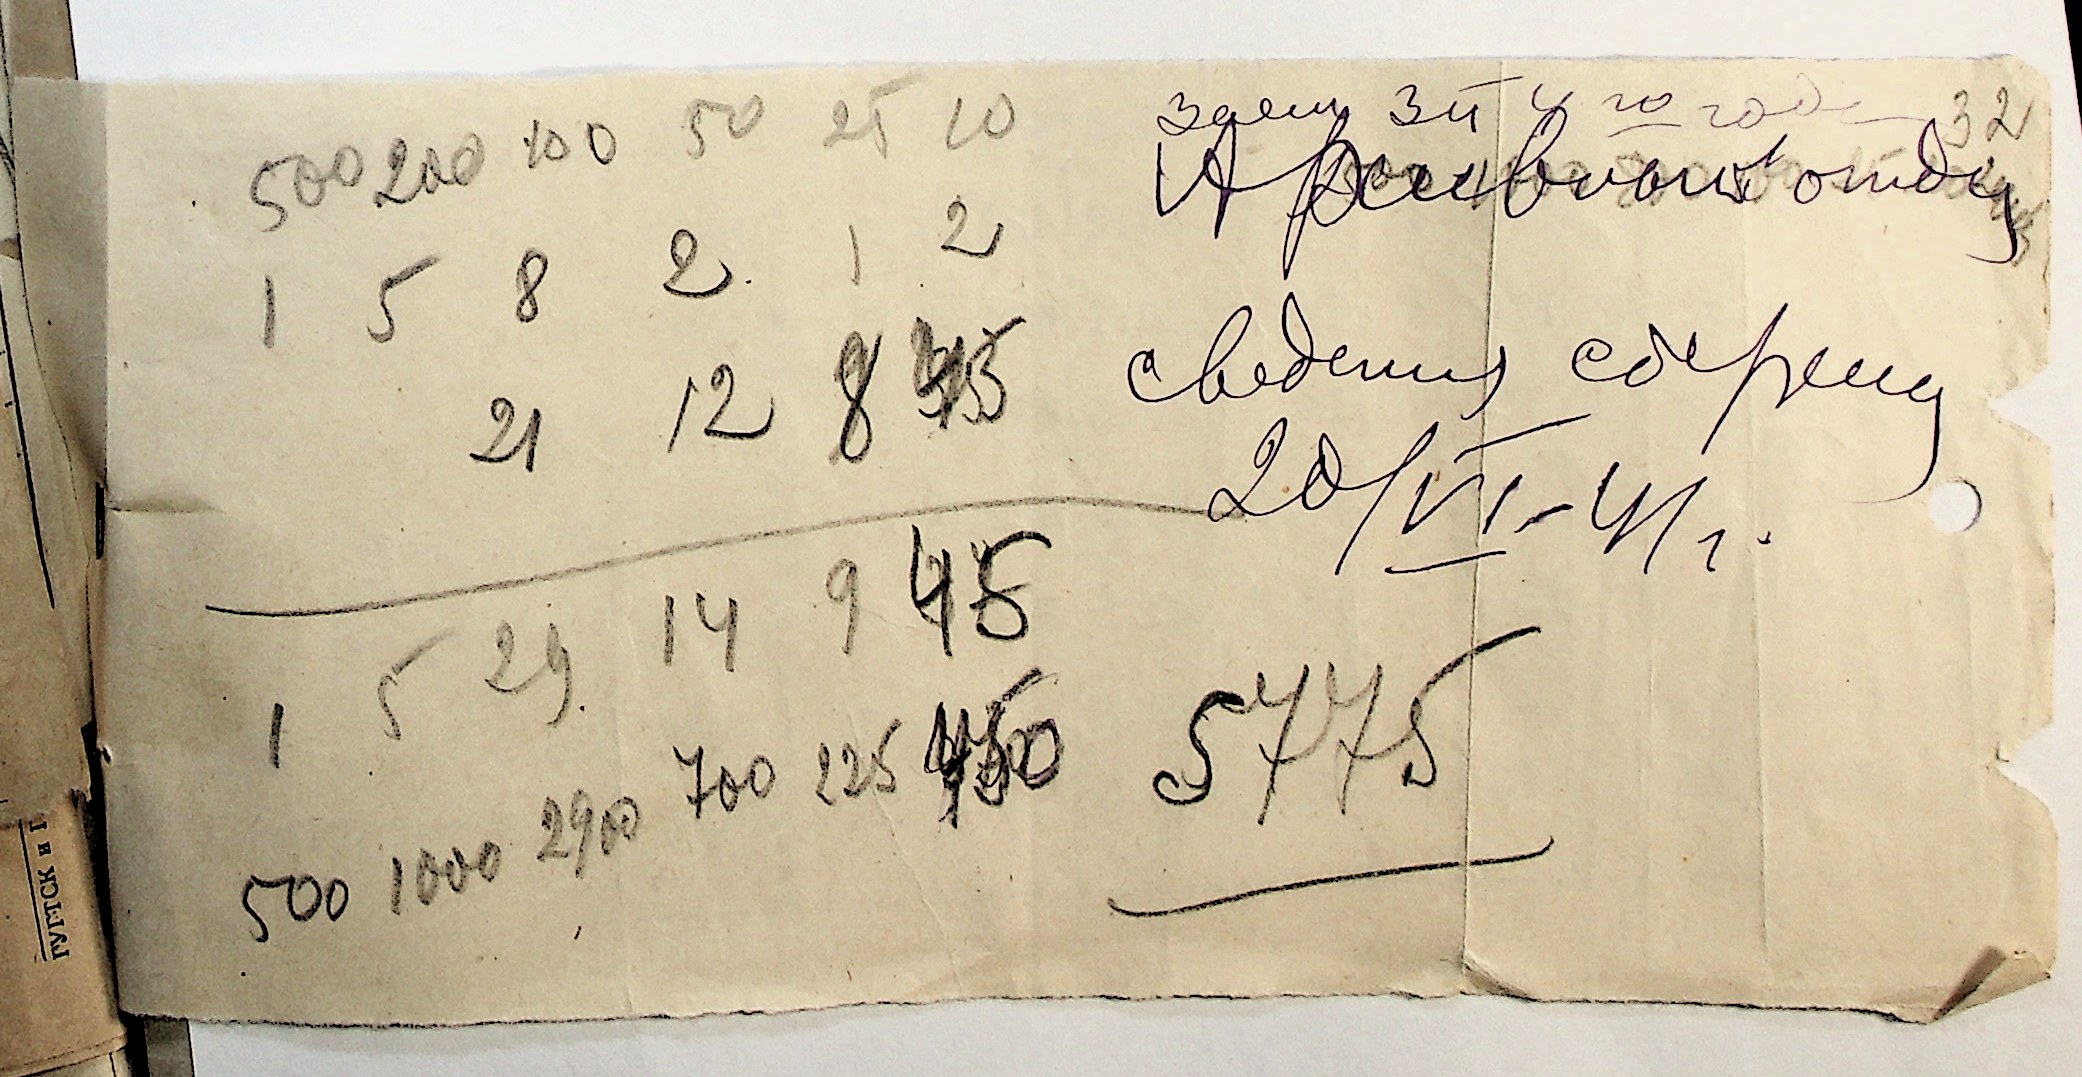 500 200 100 50 25 10
1 5 8 2 1 2
21 12 8
1 5 29 14 9 45
500 1000 2900 700 225 450
5775
заем 3й 4 го года 32
сведения
20/VI-41 г.